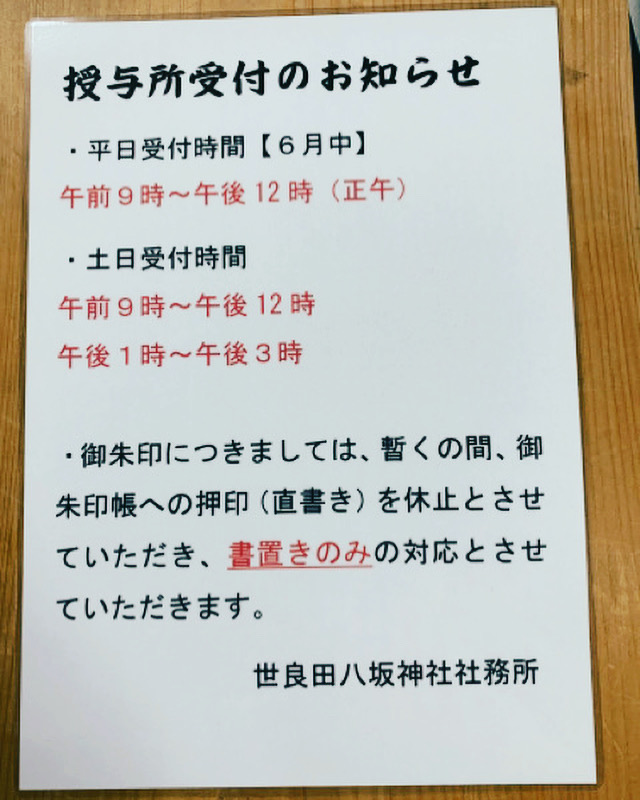 授与所受付のお知らせ
・平日受付時間【６月中】
午前９時～午後12時（正午）
・土日受付時間
午前９時～午後12時
午後１時～午後３時
・御朱印につきましては、暫くの間、御
朱印帳への押印（直書き）を休止とさせ
ていただき、書置きのみの対応とさせ
ていただきます。
世良田八坂神社社務所